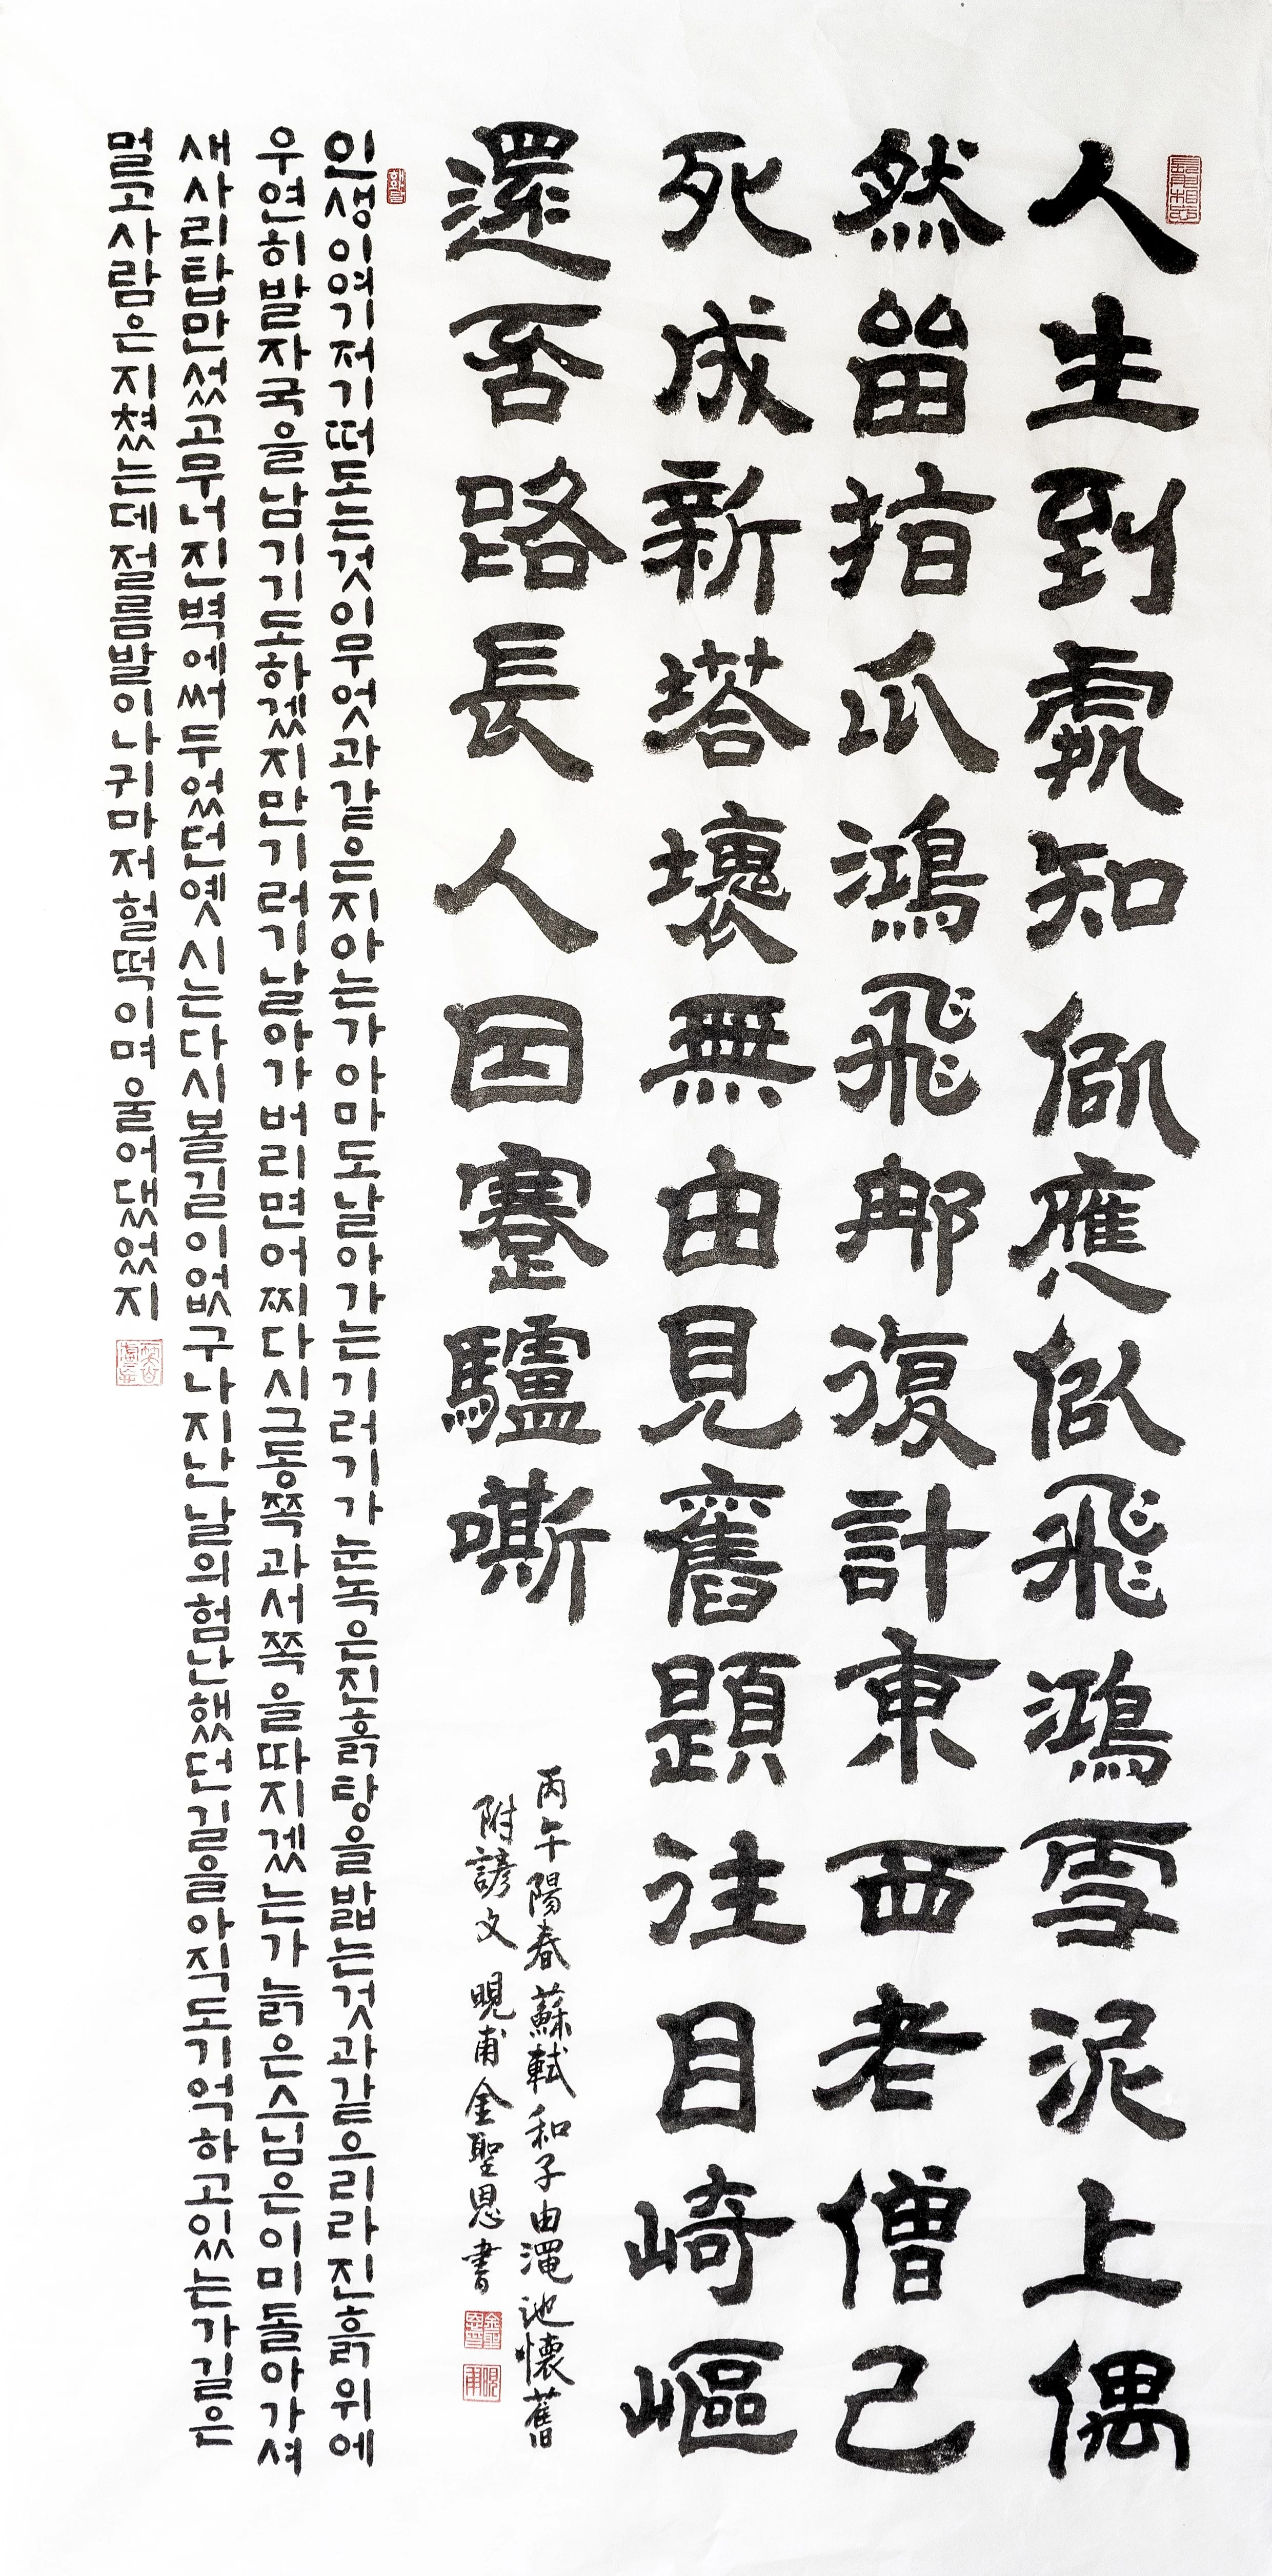 人生到處知應似飛鴻雪泥上偶
然留指爪鴻飛那復計東西老僧已
死成新塔壞無由見舊題往目崎嶇
還否路長人困蹇驢嘶
丙午陽春蘇軾和子由澠池懷舊
附諺文 晛甫 金聖恩書
인생이여기저기떠도는것이무엇과같은지아는가아마도날아가는기러기가눈녹은진흙탕을밟는것과같으리라진흙위에
우연히발자국을남기기도하겠지만기러기날아가버리면어찌다시그동쪽과서쪽을따지겠는가늙은스님은이미돌아가셔
새사리탑만섰고무너진벽에써두었던옛시는다시볼길이없구나지난날의험난했던길을아직도기억하고있는가길은
멀고사람은지쳤는데절름발이나귀마저헐떡이며울어댔었지